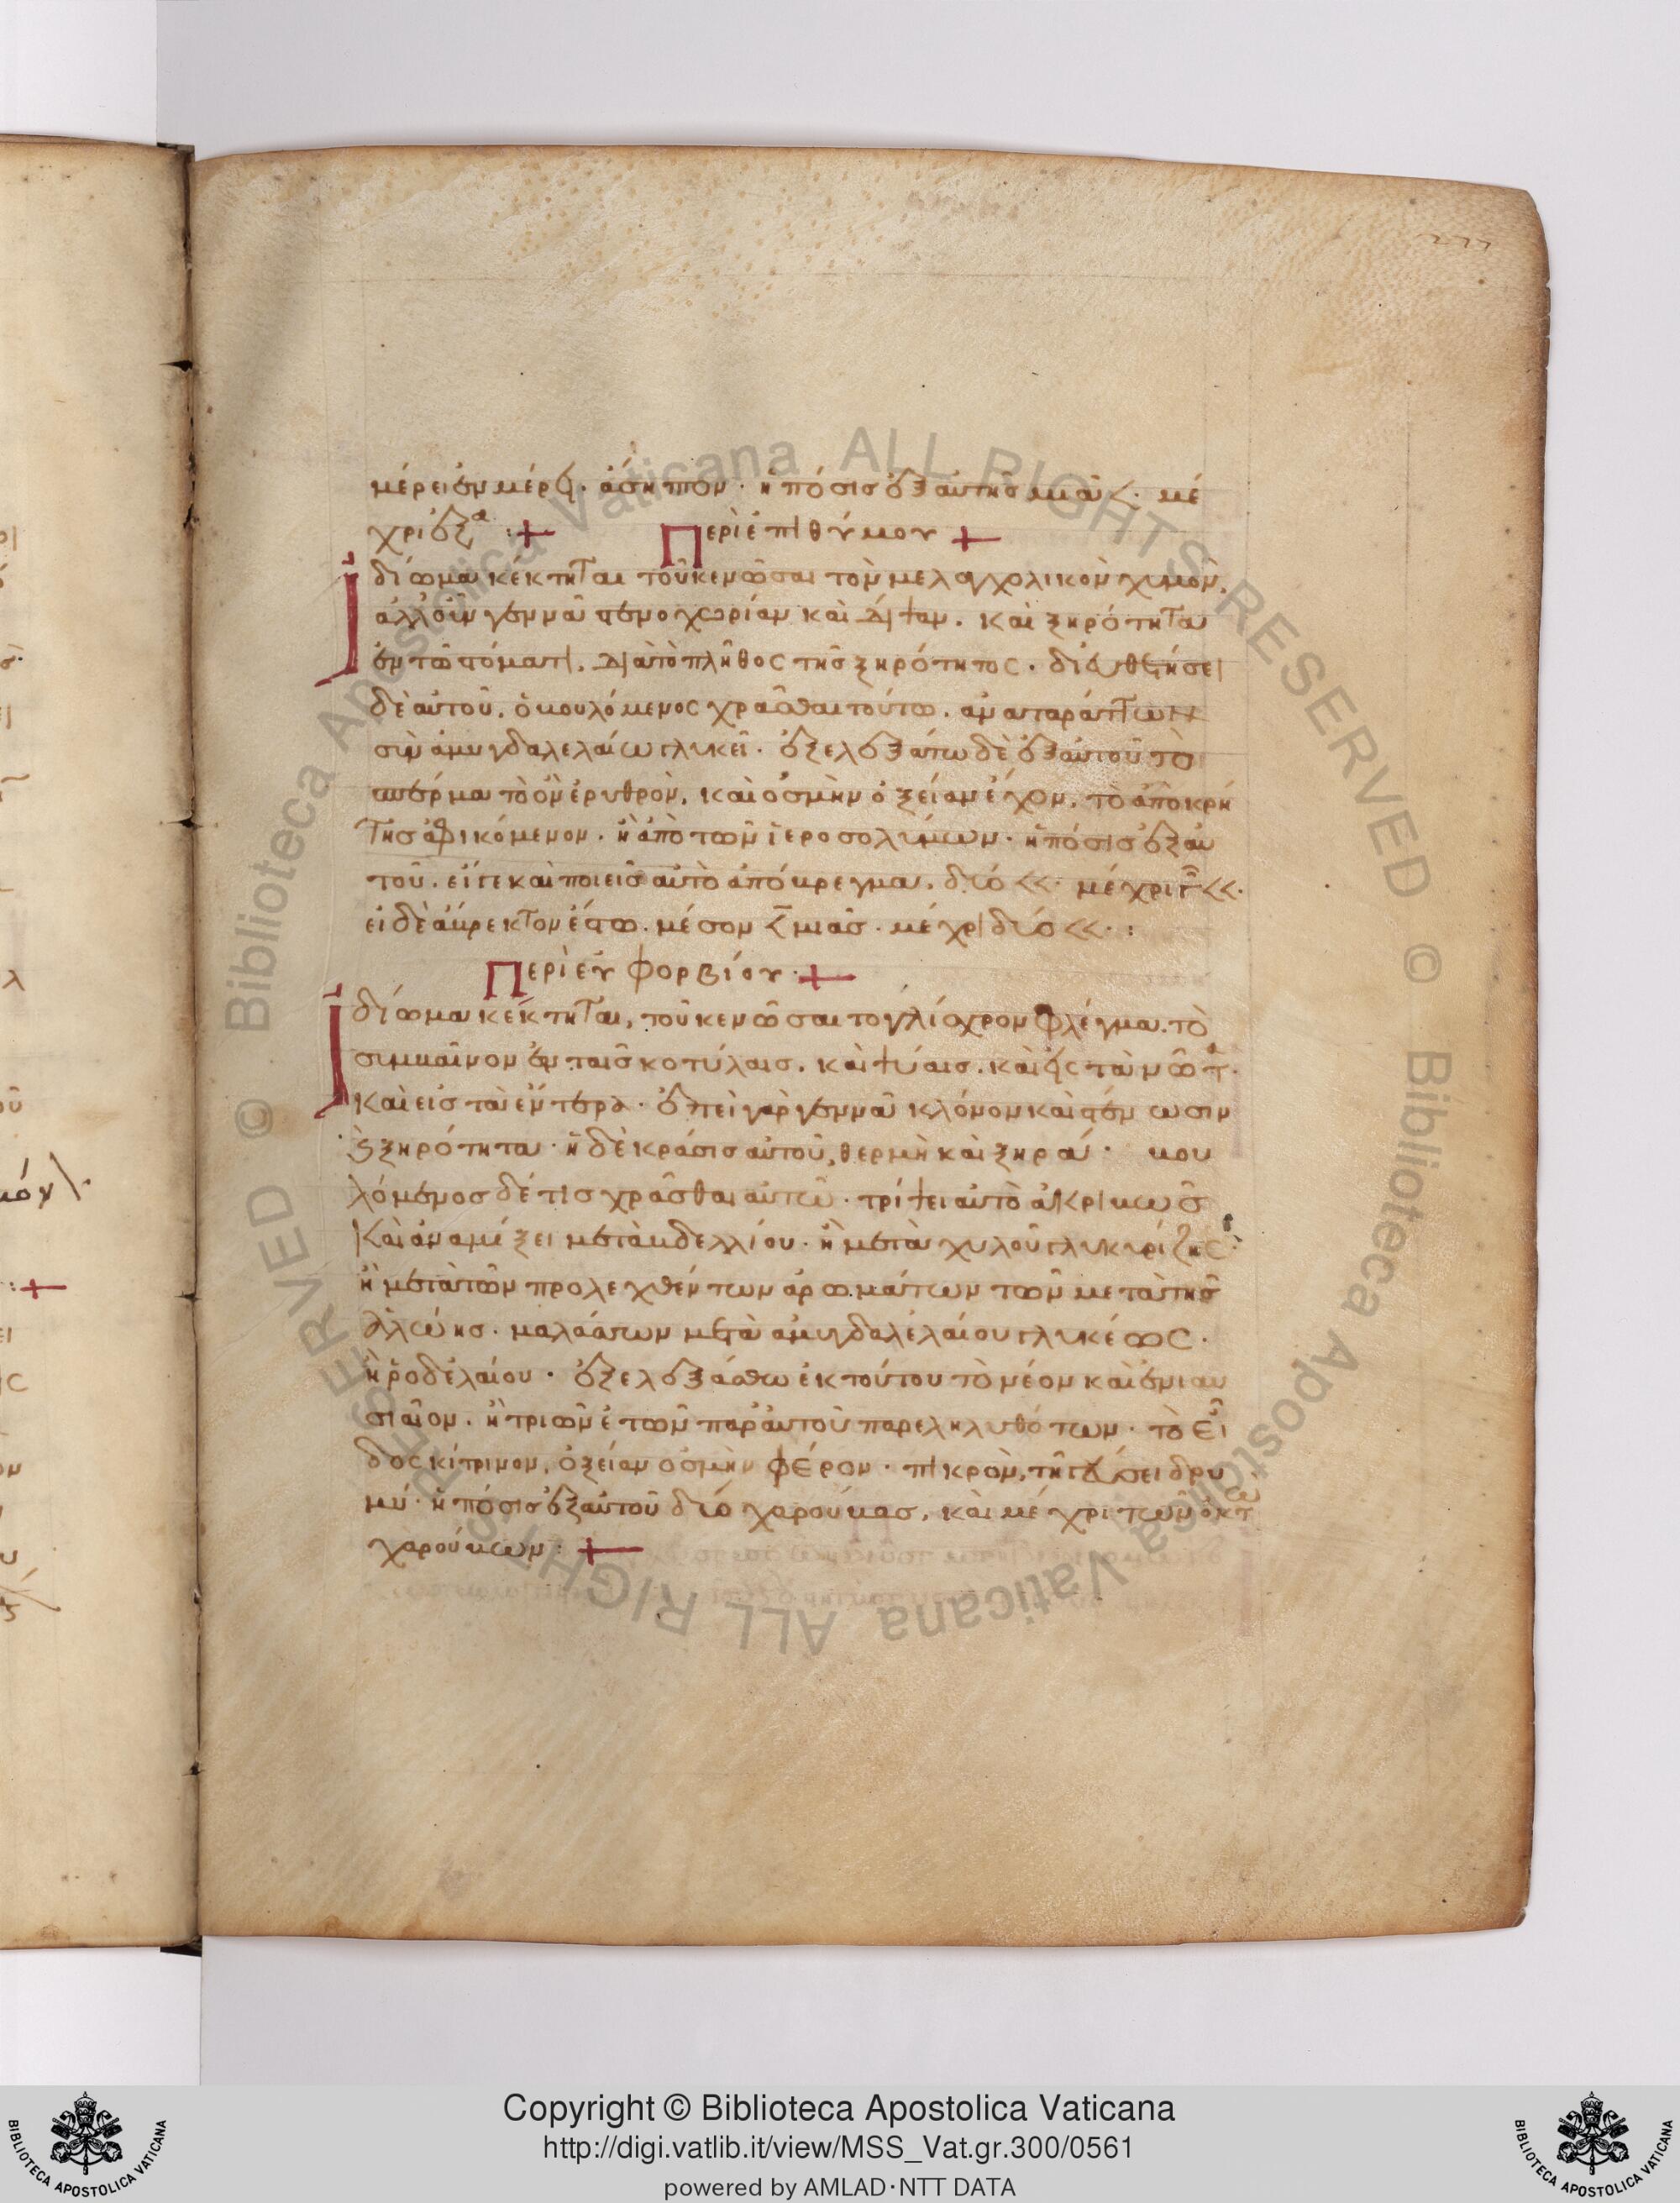 277
μέρει ἐν μέρει. ἄσηπτον· ἡ πόσις ἐξ αὐτῆς μιᾶς <· μέ
χρι ἑξα :+ Περὶ ἐπιθύμου +
Ἰδίωμα κέκτηται τοῦ κενῶσαι τὸν μελαγχολικὸν χυμὸν,
ἀλλ' οὖν γεννᾶ στενοχωρίαν καὶ δίψαν. καὶ ξηρότητα
ἐν τῶ στόματι. διὰ τὸ πλῆθος τῆς ξηρότητος.
δὲ αὐτοῦ. ὁ βουλόμενος χρᾶσθαι τούτω.
σὺν ἀμυγδαλελαίω γλυκεῖ· ἐξελεξάτω δὲ ἐξ αὐτοῦ τὸ
σπέρμα τὸ ὂν ἐρυθρὸν, καὶ ὀσμὴν ὀξεῖαν ἔχον, τὸ ἀπὸ κρή
της ἀφικόμενον· ἢ ἀπὸ τῶν ἱεροσολύμων· ἡ πόσις ἐξ αυ
τοῦ. εἴ γε καὶ ποιεῖς αὐτὸ ἀπόβρεγμα. δύο <<· μέχρι γ <<·
εἰ δὲ ἄβρεκτον ἔστω. μέσον < μιᾶς· μέχρι δύο <<· :
Περὶ εὐφορβίου· +
Ἰδίωμα κέκτηται, τοῦ κενῶσαι το γλίσχρον φλέγμα. τὸ
συμβαῖνον ἐν ταῖς κοτύλαις. καὶ ψύαις. καὶ εἰς τὰ νῶτα·
καὶ εἰς τὰ ἔντερα· ἐπεὶ γὰρ γεννᾶ κλόνον καὶ στένωσιν
ξηρότητα· ἡ δὲ κράσις αὐτοῦ, θερμὴ καὶ ξηρά· βου
λόμενος δέ τις χρᾶσθαι αὐτῶ· τρίψει αὐτὸ ἀκριβῶς
καὶ ἀναμίξει μετὰ βδελλίου· ἢ μετὰ χυλοῦ γλυκυρίζης·
ἢ μετὰ τῶν προλεχθέντων ἀρωμάτων τῶν μετὰ τῆς
ἀλώης· μαλάττων μετὰ ἀμυγδαλελαίου γλυκέως·
ἢ ῥοδελαίου· ἐξελεξάσθω ἐκ τούτου τὸ νέον καὶ ἐνιαυ
σιαῖον. ἢ τριῶν ἐτῶν παρ' αὐτοῦ παρεληλυθότων· τὸ εἶ
δος κίτρινον, ὀξεῖαν ὀσμὴν φέρον· πικρὸν, τῆ γεύσει δρυ
μύ· ἡ πόσις ἐξ αὐτοῦ δύο χαρούβας, καὶ μέχρι τῶν ὀκτω
χαρούβων: +
Copyright © Biblioteca Apostolica Vaticana
http://digi.vatlib.it/view/MSS_Vat.gr.300/0561
powered by AMLAD·NTT DATA
BIBLIOTECA APOSTOLICA VATICANA
BIBLIOTECA APOSTOLICA VATICANA
© Biblioteca Apostolica Vaticana ALL RIGHTS RESERVED © Biblioteca Apostolica Vaticana ALL RIGHTS RESERVED